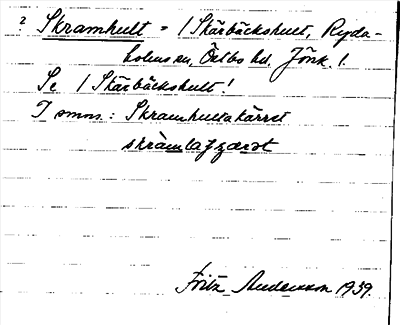 ? Skramhult = / Skärbäckshult, Ryda-
holms sn, Östbo hd. Jönk. l.
Se / Skärbäckshult!
I smns.: Skramhultakärret
Fritz Andersson 1939.